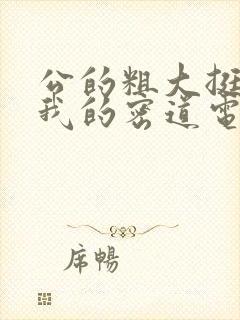 公的粗大挺
我的密道电
席暢